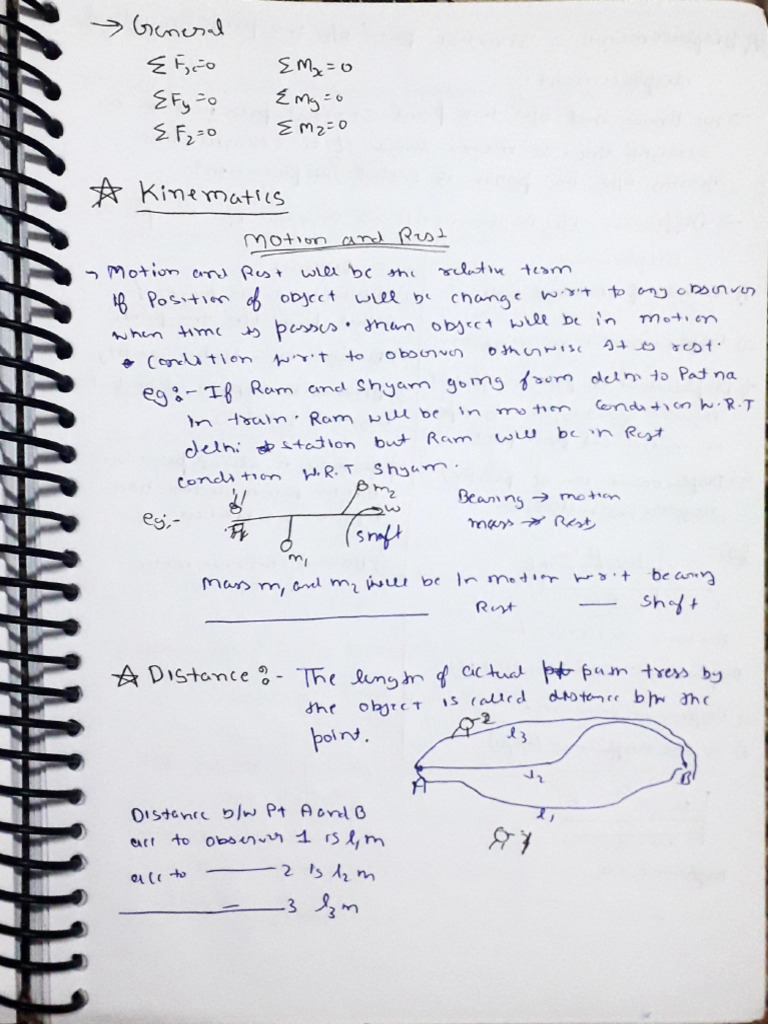 → General
ΣFx=0 ΣMx=0
ΣFy=0 ΣMy=0
ΣFz=0 ΣMz=0
☆ Kinematics
Motion and Rest
→ Motion and Rest will be the relative term
If Position of object will be change w.r.t to any observer
when time is passes. than object will be in motion
condition w.r.t to observer otherwise It is rest.
eg:- If Ram and Shyam going from delhi to Patna
in train. Ram will be in motion condition W.R.T
delhi station but Ram will be in Rest
condition W.R.T Shyam.
eg:- m1 m2 ω shaft
Bearing → motion
mass → Rest
Mass m1 and m2 will be in motion w.r.t bearing
Rest — Shaft
☆ Distance:- The length of actual path tress by
the object is called distance b/w the
point.
2 l3
A l2 B
l1
1
Distance b/w Pt A and B
acc to observer 1 is l1 m
acc to — 2 is l2 m
— = — 3 l3 m